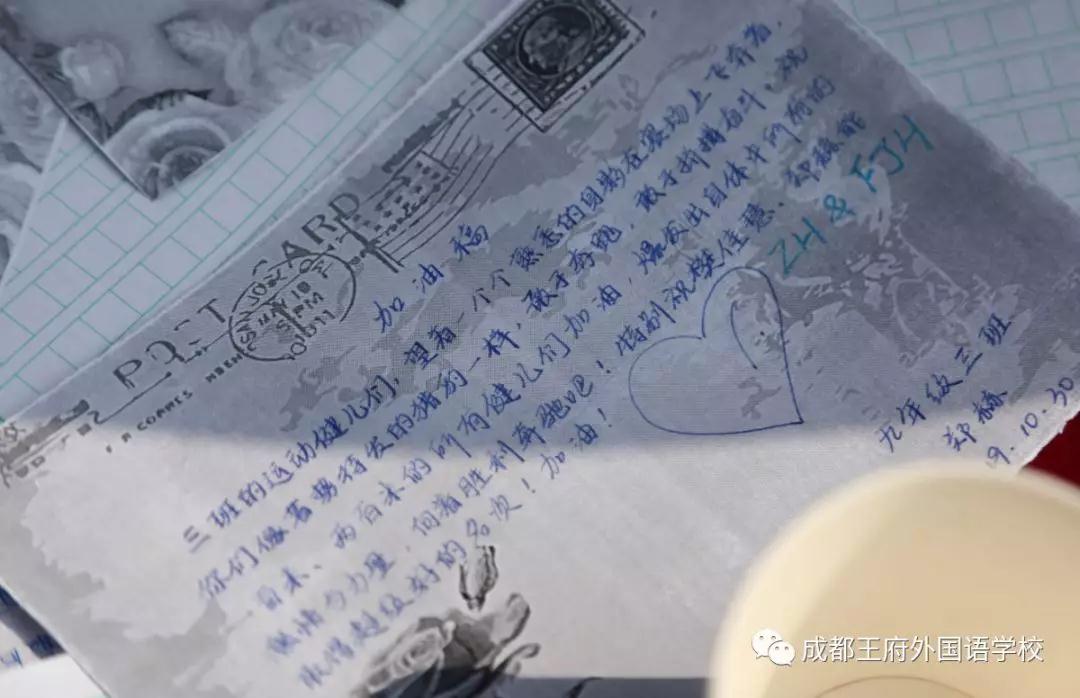 POST CARD
SAN JOSE CAL
MAY 18
5 PM
2011
加油稿
三班的运动健儿们,望着一个个熟悉的身影在操场上飞奔着,
你们像蓄势待发的猎豹一样,敢于奔跑,敢于拼搏奋斗,祝
百米、两百米的所有健儿们加油,爆发出自体中所有的
激情与力量,向着胜利奔驰吧!特别祝樊佳慧、郑赫能
取得超级好的名次!加油!
ZH & FJH
九年级三班
郑赫
9.10.30
成都王府外国语学校